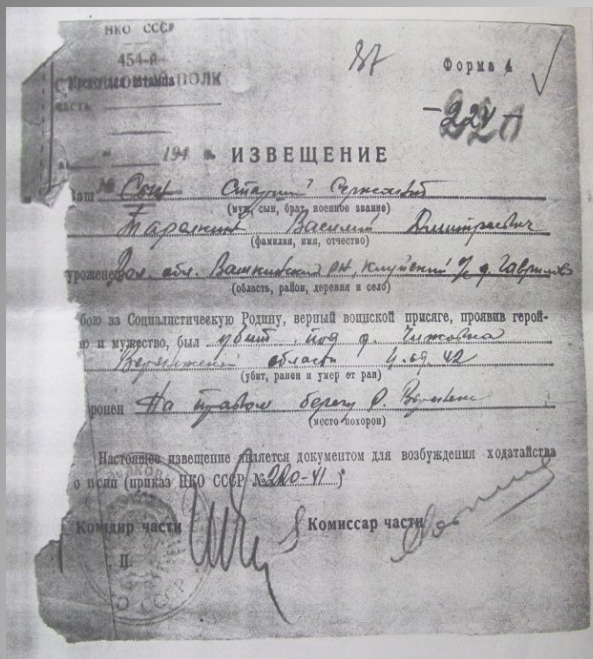 НКО СССР
454-й
ПОЛК
часть
37
Форма 4
194
ИЗВЕЩЕНИЕ
Ваш Сын Старший Сержант
(муж, сын, брат, военное звание)
Василий Дмитриевич
(фамилия, имя, отчество)
уроженец Вол. обл. Вашкинский р-н д. Гаврилово
(область, район, деревня и село)
бою за Социалистическую Родину, верный воинской присяге, проявив герой-
и мужество, был убит под д. Чижовка
Воронежской области 42
(убит, ранен и умер от ран)
ронен На правом берегу р. Воронеж
(место похорон)
Настоящее извещение является документом для возбуждения ходатайства
о пенсии (приказ НКО СССР № 220-41)
Командир части
Комиссар части
П.
СССР